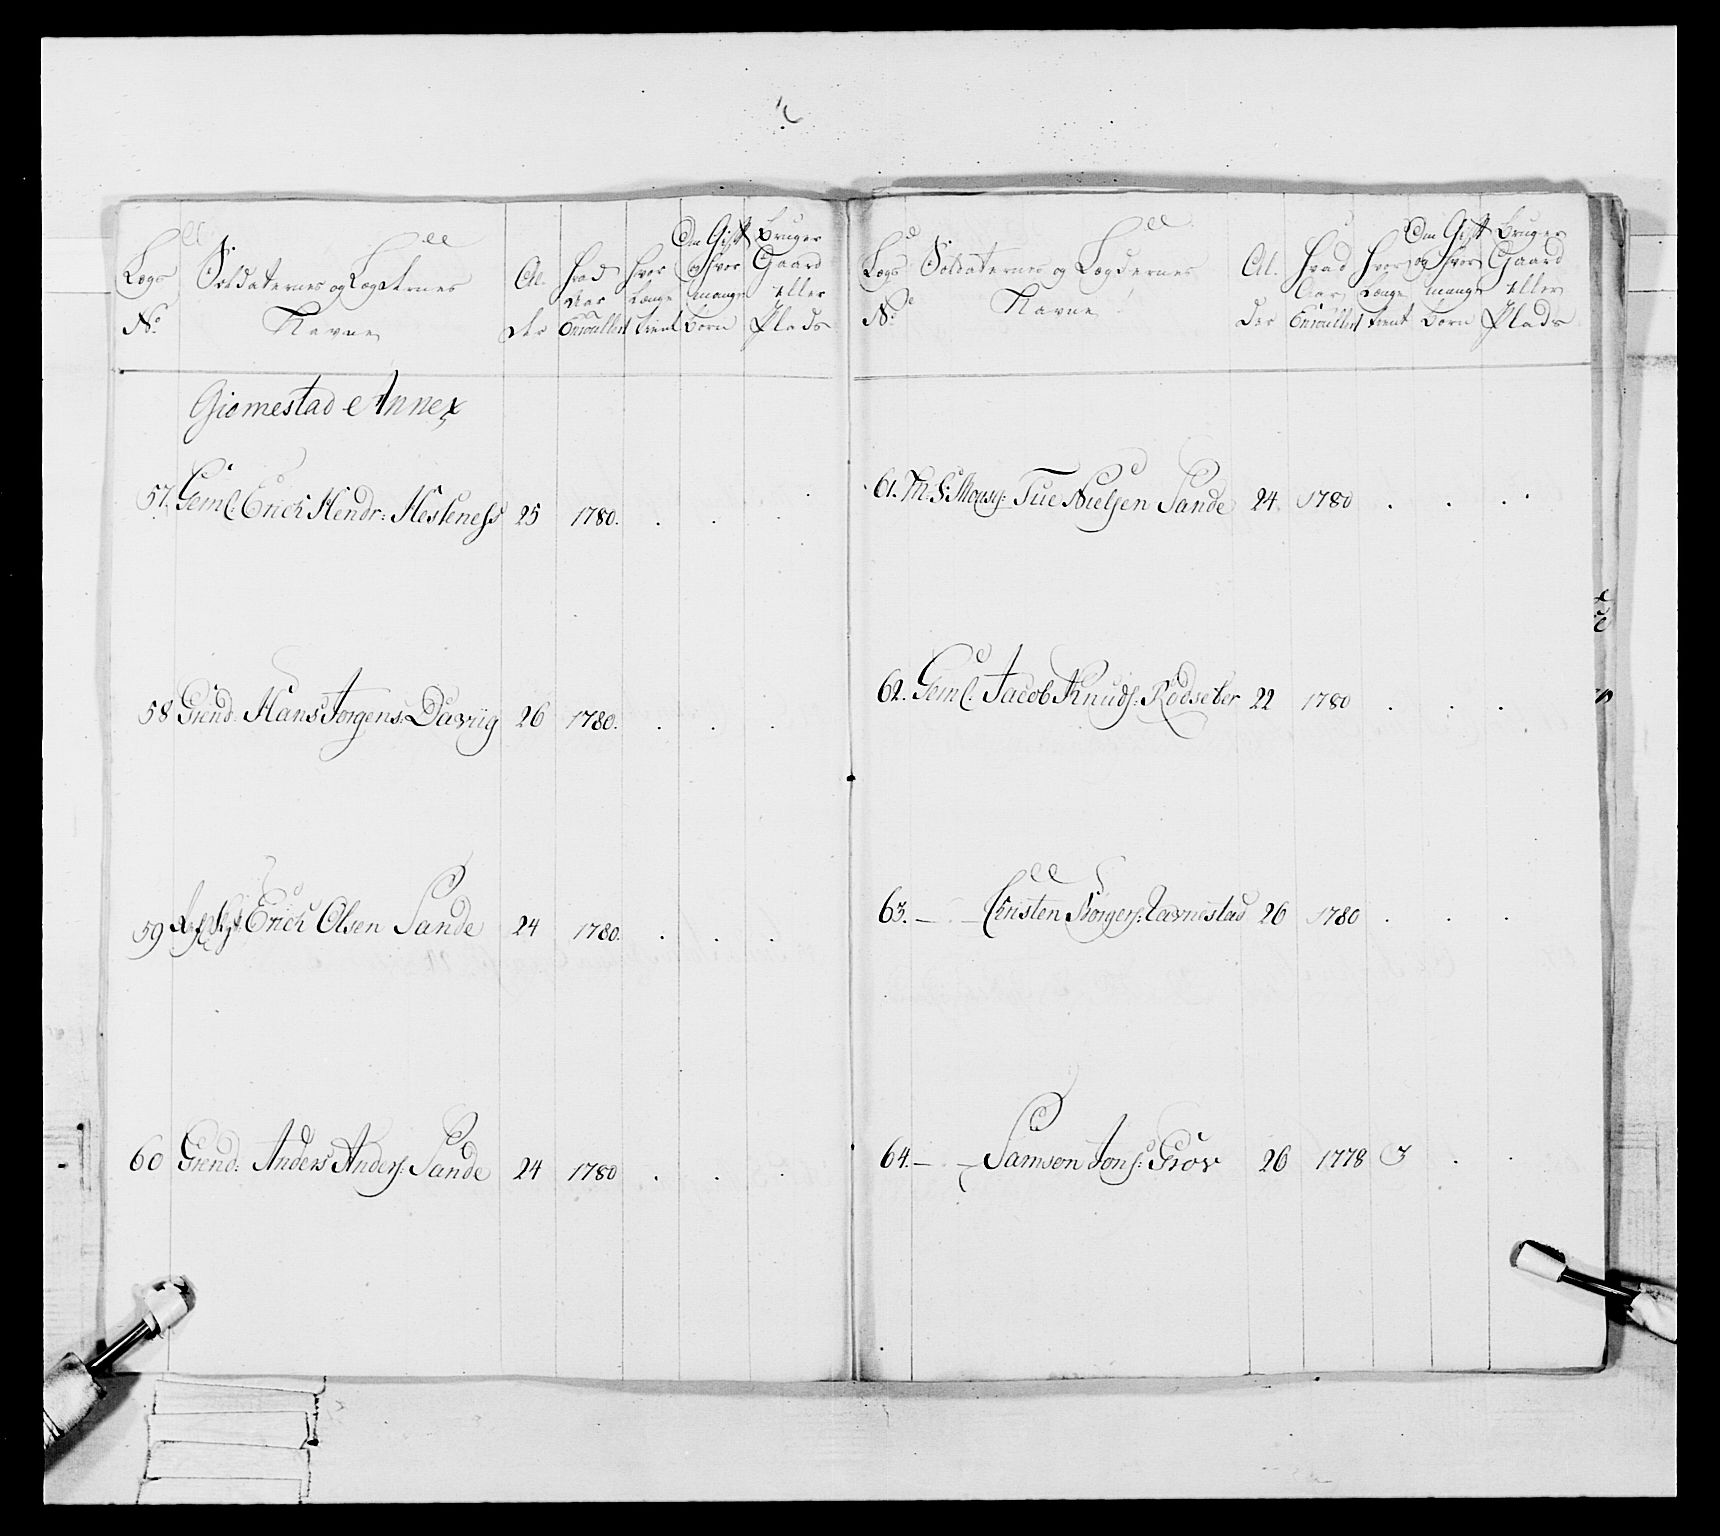 Lægs No Soldaternes og Lægdernes Navne Alder Hvad Aar Enroullert Hvor Længe tient Om Gift og hvor mange børn Bruger Gaard eller Plads
Giomestad Annex
57. Geml: Erich Hendr: Hesteness 25 1780. . . .
58 Grend: Hans Jorgens: Daviig 26 1780. . . .
59 Erich Olsen Sande 24 1780. . . .
60 Grend: Anders Anders: Sande 24 1780 . . .
Lægs No Soldaternes og Lægdernes Navne Alder Hvad Aar Enroullert Hvor Længe tient Om Gift og hvor mange børn Bruger Gaard eller Plads
61. Tue Nielsen Sande 24. 1780 . . .
62. Geml: Jacob Knuds: Rødseter 22 1780 . . .
63. — . — Christen Børgers: 26 1780 . . .
64. — . — Samson Jons: Grov 26 1778 3 . .